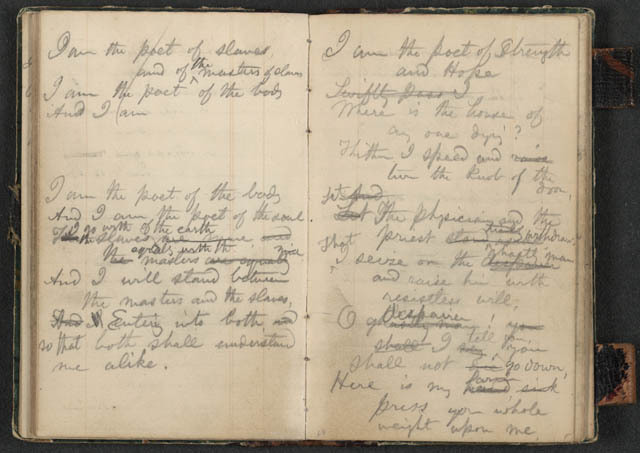 I am the poet of slaves,
and of the masters of slaves
I am the poet of the body
And I am
I am the poet of the body
And I am the poet of the soul
I go with the slaves of the earth
The slaves are mine and
equally with the
the masters are equally mine
And I will stand between
the masters and the slaves,
And I Entering into both and
so that both shall understand
me alike.
I am the poet of Strength
and Hope
Swiftly pass I
Where is the house of
any one dying?
Thither I speed and raise
turn the knob of the
door,
Let And
Let The physician and the
priest stand timidly withdraw,
That ghastly
I seize on the despairer man
and raise him with
resistless will;
O despairer!
ghastly man! you
shall I tell you,
say, you
shall not die go down,
Here is my hand sick
press your whole
weight upon me,